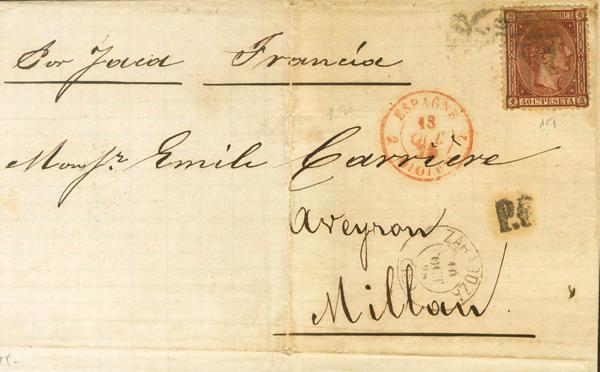 Por Jaca Francia
40 CS PESETA
ESPAGNE
2 18 2
Monsr. Emile Carrière
Aveyron
P.
ZARAGOZA
Millau